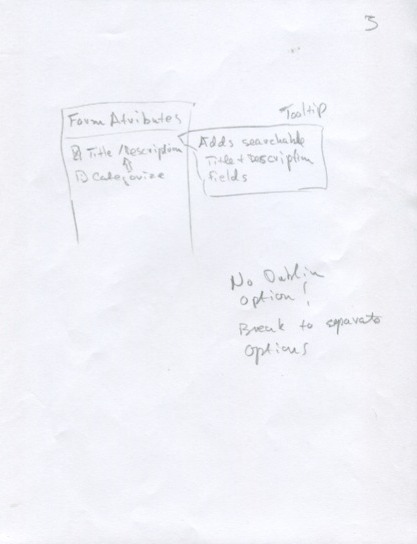 3
Form Atributes
Title/Description
Categorize
Tooltip
Adds searchable
Title + Description
Fields
No Dublin
option!
Break to separate
options